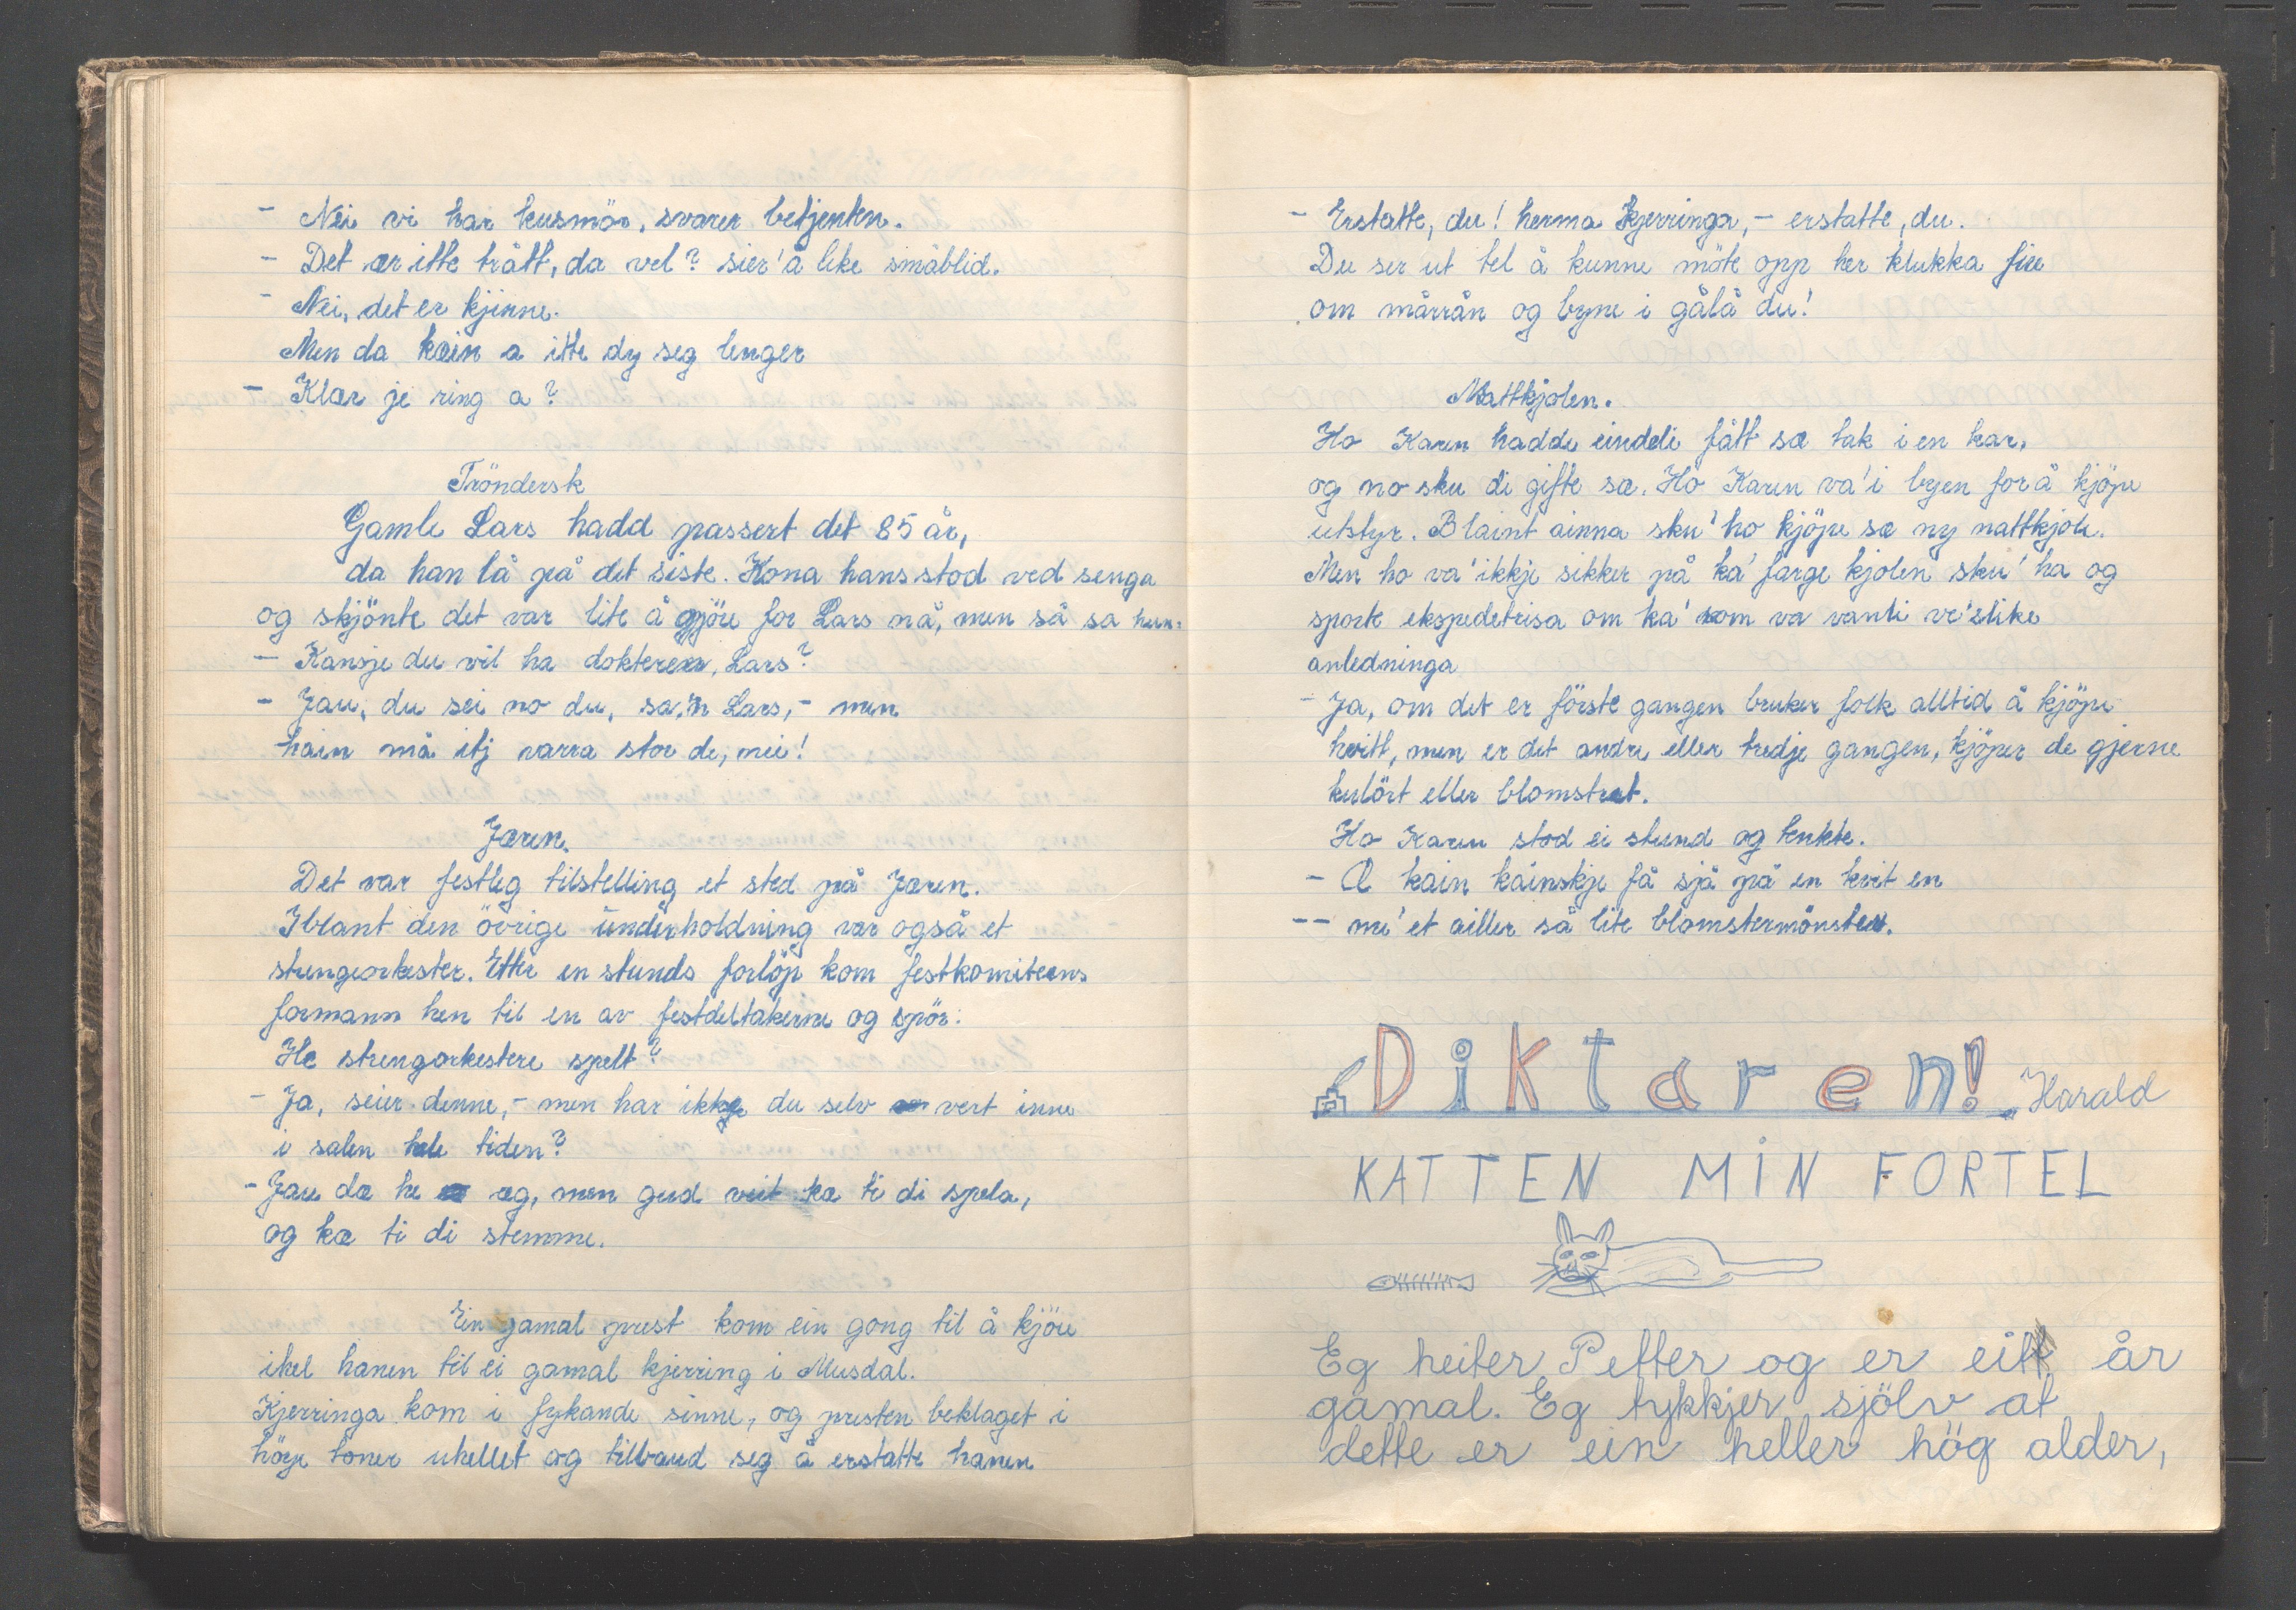 - Nei vi har kusmör, svarer betjenten.
- Det ær itte trått, da vel? sier'å like småblid.
- Nei, det er kjinne.
Men da kæin a itte dy seg lenger
- Klær je ring a?
Tröndersk
Gamle Lars hadd passert det 85 år,
da han lå på det siste. Kona hans stod ved senga
og skjönte det var lite å gjöre for Lars nå, men så sa hun:
- Kansje du vil ha dokteren, Lars?
- Jau, du sei no du, sa'n Lars, - men
hain må itj varra stor de, nei!
Jæren.
Det var festleg tilstelling et sted på Jæren.
Iblant den övrige underholdning var også et
strengeorkester. Etter en stunds forlöp kom festkomiteens
formann hen til en av festdeltakerne og spör:
He strengorkestere spelt?
- Ja, seier denne, - men har ikkje du selv vert inne
i salen hele tiden?
- Jau da he eg, men gud veit ka ti di spela,
og ka ti di stemme.
Ein gamal prest kom ein gong til å kjöre
ihel hanen til ei gamal kjerring i Musdal.
Kjerringa kom i fykande sinne, og presten beklaget i
höge toner uhellet og tilbaud seg å erstatte hanen
- Erstatte, du! herma kjerringa, - erstatte, du.
Du ser ut tel å kunne möte opp her klukka fire
om mårrån og byne i gålå du!
Nattkjolen.
Ho Karen hadde eindeli fått sæ tak i en kar,
og no sku di gifte sæ. Ho Karen va' i byen for å kjöpe
utstyr. Blaint ainna sku' ho kjöpe sæ ny nattkjole.
Men ho va' ikkje sikker på ka' farge kjolen sku' ha og
sporte ekspedetrisa om ka' som va vanli ve' slike
anledninga
- Ja, om det er förste gangen bruker folk alltid å kjöpe
hvitt, men er det andre eller tredje gangen, kjöper de gjerne
kulört eller blomstret.
Ho Karen stod ei stund og tenkte.
- Æ kain kainskje få sjå på en kvit en
-- me' et ailler så lite blomstermönster.
Diktaren! Harald
KATTEN MIN FORTEL
Eg heiter Petter og er eitt år
gamal. Eg tykkjer sjölv at
dette er ein heller hög alder,